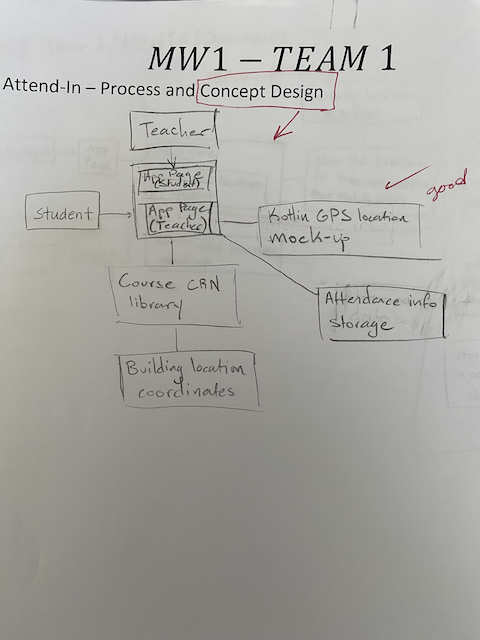 MW1 – TEAM 1
Attend-In – Process and Concept Design
Teacher
App Page
(Student)
App Page
(Teacher)
Student
Kotlin GPS location
mock-up
good
Course CRN
library
Attendance info
storage
Building location
coordinates